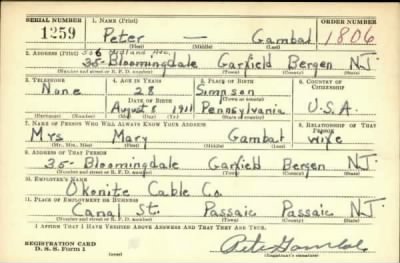 SERIAL NUMBER 1. NAME (Print) ORDER NUMBER
1259 Peter — Gambal 1806
(First) (Middle) (Last)
2. ADDRESS (Print) 306 Midland Ave.
35- Bloomingdale Garfield Bergen N.J.
(Number and street or R. F. D. number) (Town) (County) (State)
3. TELEPHONE 4. AGE IN YEARS 5. PLACE OF BIRTH 6. COUNTRY OF CITIZENSHIP
None 28 Simpson
DATE OF BIRTH (Town or county)
August 6 1911 Pennsylvania U.S.A.
(Mo.) (Day) (Yr.) (State or country)
7. NAME OF PERSON WHO WILL ALWAYS KNOW YOUR ADDRESS 8. RELATIONSHIP OF THAT PERSON
Mrs Mary Gambal wife
(Mr., Mrs., Miss) (First) (Middle) (Last)
9. ADDRESS OF THAT PERSON
35- Bloomingdale Garfield Bergen N.J.
(Number and street or R. F. D. number) (Town) (County) (State)
10. EMPLOYER'S NAME
Okonite Cable Co.
11. PLACE OF EMPLOYMENT OR BUSINESS
Canal St. Passaic Passaic N.J.
(Number and street or R. F. D. number) (Town) (County) (State)
I AFFIRM THAT I HAVE VERIFIED ABOVE ANSWERS AND THAT THEY ARE TRUE.
REGISTRATION CARD Pete Gambal
D. S. S. Form 1 (Registrant's signature)